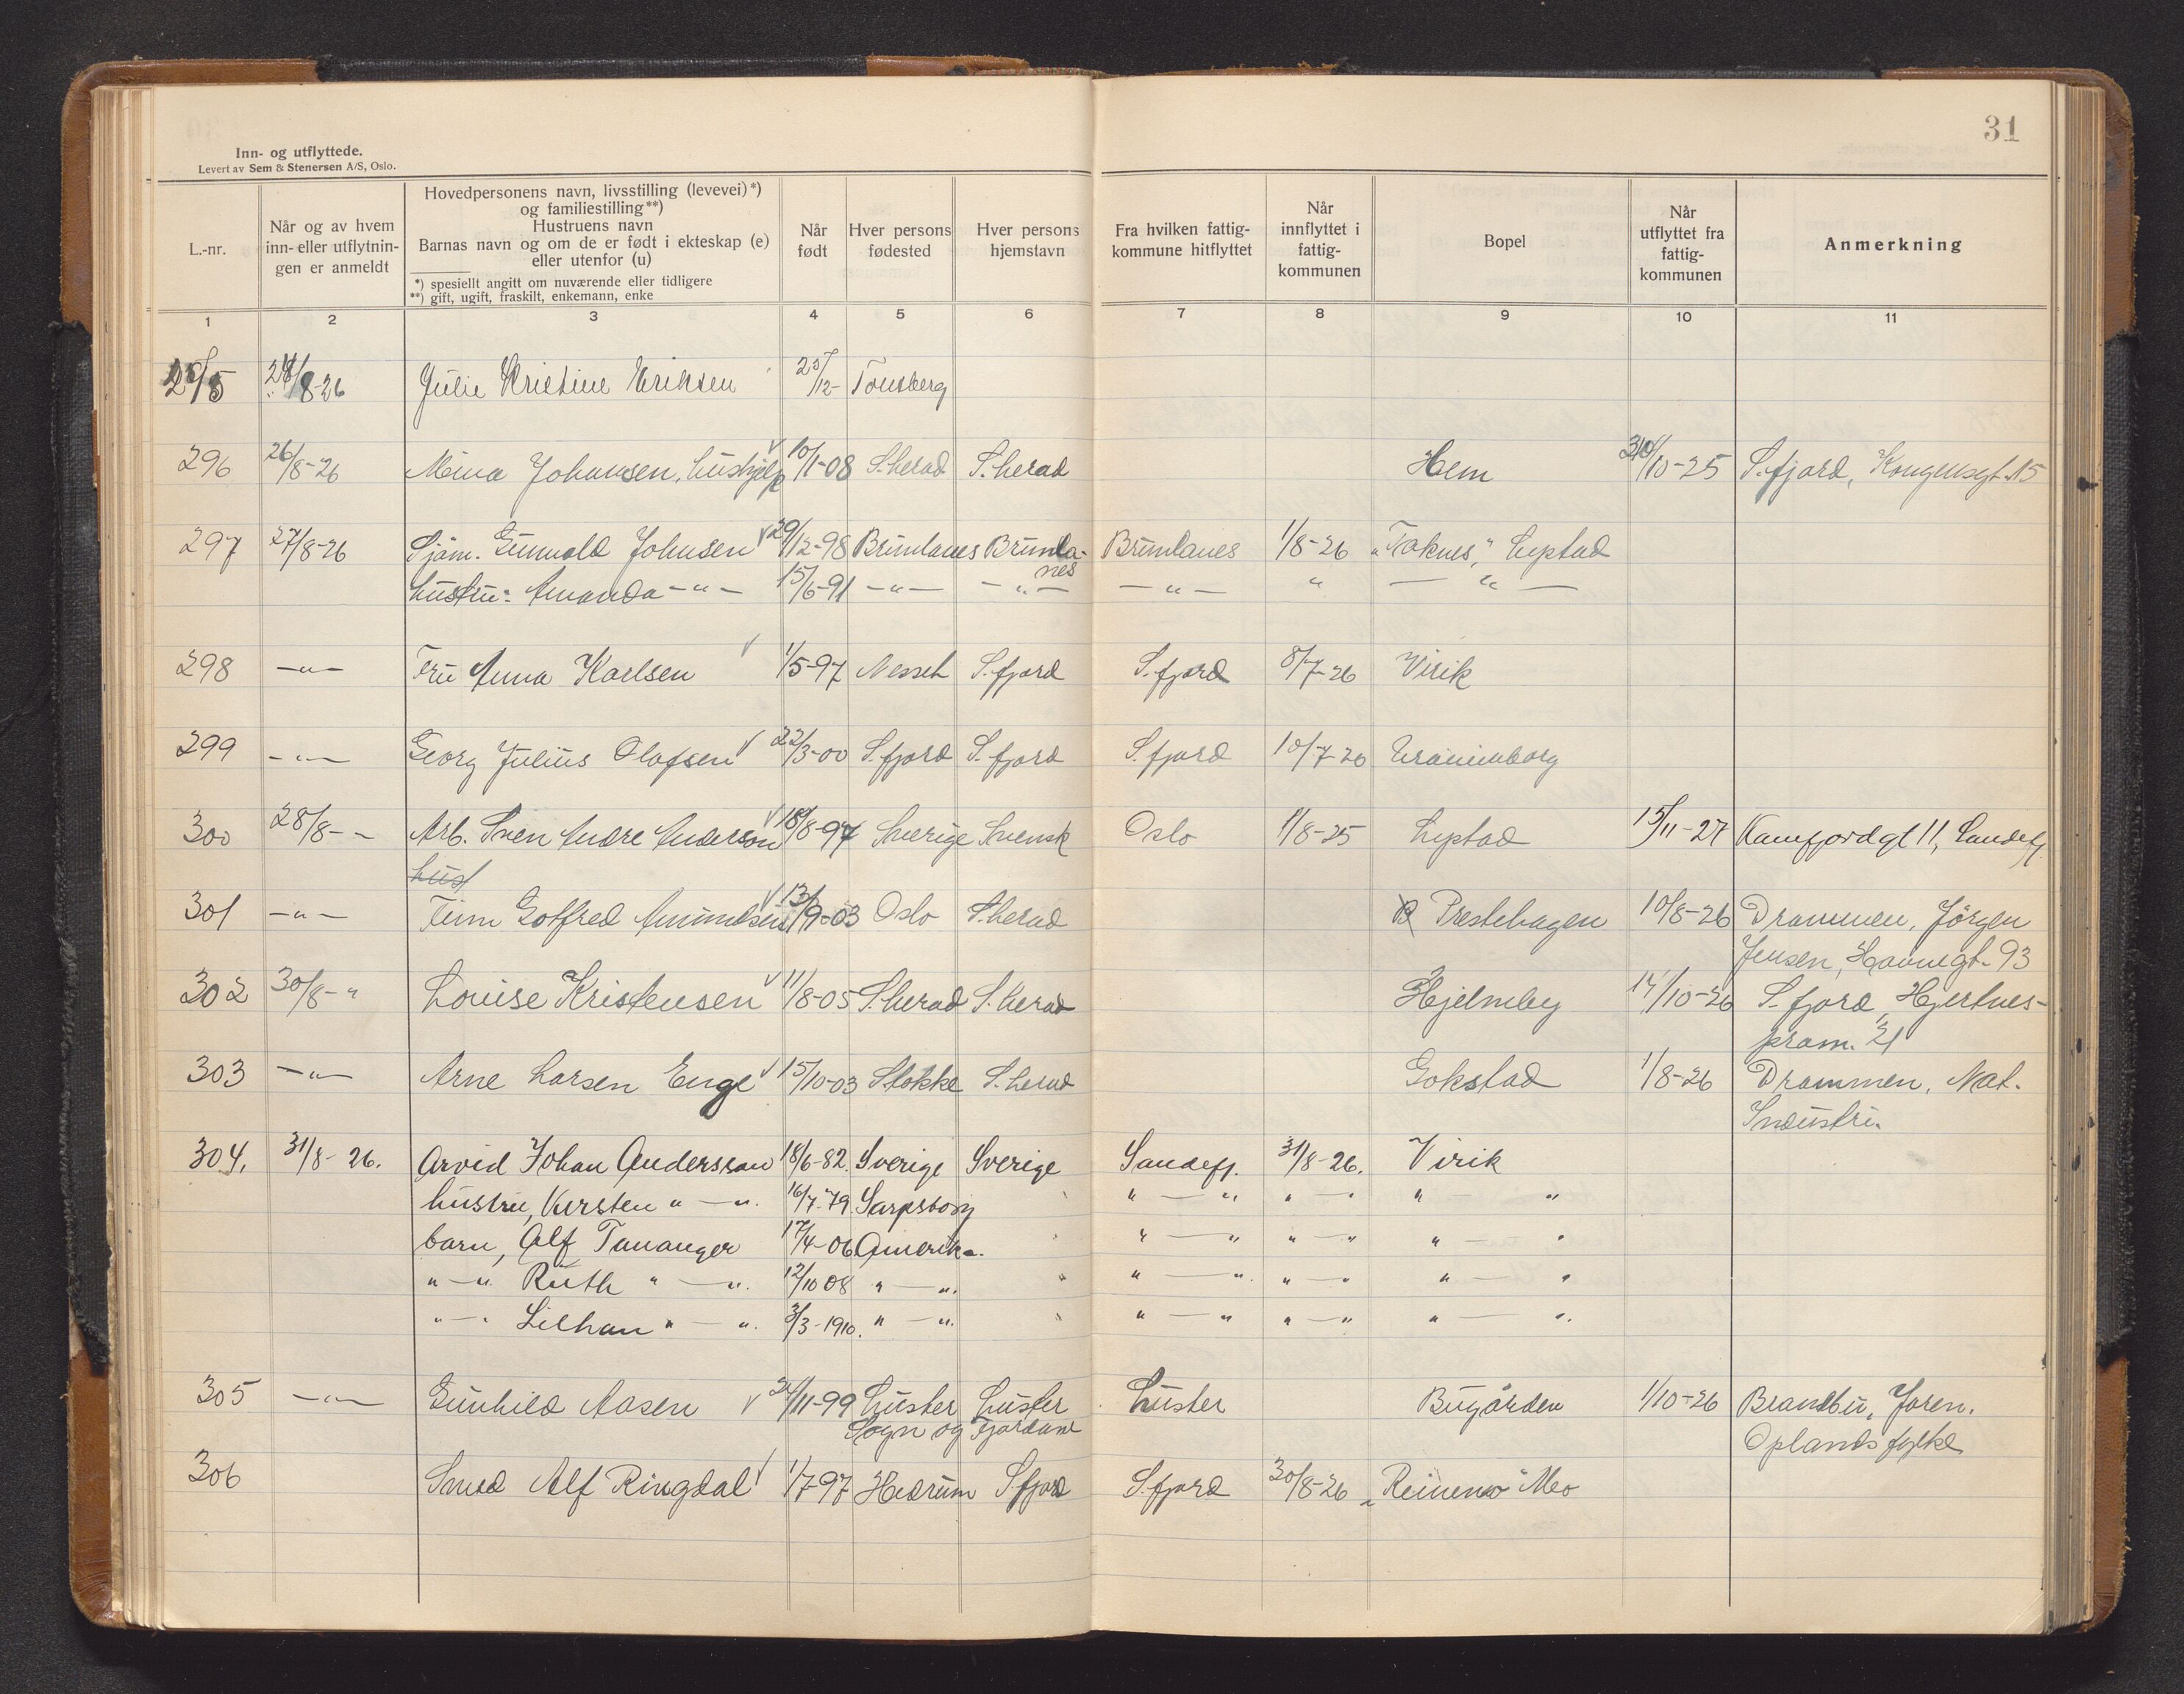 31
Inn- og utflyttede.
Levert av Sem & Stenersen A/S, Oslo.
L.-nr. Når og av hvem inn- eller utflytnin-gen er anmeldt Hovedpersonens navn, livsstilling (levevei)*) og familiestilling**) Hustruens navn Barnas navn og om de er født i ekteskap (e) eller utenfor (u) Når født Hver persons fødested Hver persons hjemstavn Fra hvilken fattig-kommune hitflyttet Når innflyttet i fattig-kommunen Bopel Når utflyttet fra fattig-kommunen Anmerkning
*) spesiellt angitt om nuværende eller tidligere
**) gift, ugift, fraskilt, enkemann, enke
1 2 3 4 5 6 7 8 9 10 11
295 28/8-26 Julie Kristine Eriksen Tönsberg
296 26/8-26 Mina Johansen, hushjelp 10/1-08 S.herad S.herad Hem /10-25 S.fjord, Kongensgt. 15
297 27/8-26 Sjöm. Gunvald Johnsen 29/12-98 Brunlanes Brunla- Brunlanes 1/8-26 "Toknes", Lystad
nes
hustru: Amanda -"- 15/6-91 -"- -"- -"- " -"-
298 -"- Fru Anna Karlsen 1/5-97 Nesseh S.fjord S.fjord 8/7-26 Virik
299 -"- Georg Julius Olafsen 22/3-00 S.fjord S.fjord S.fjord 10/7-26 Uranienborg
300 28/8-- Arb. Sven Andre Anderson 18/8-97 Sverige Svensk Oslo 1/8-25 Lystad 15/11-27 Kamfjordgt 11, Sandefj.
hust
301 -"- Finn Gotfred Amundsen 13/9-03 Oslo S.herad Prestehagen 10/8-26 Drammen, Jörgen
Jensen, Havnegt. 93
302 30/8-" Louise Kristensen 11/8-05 S.herad S.herad Hjelmby 14/10-26 S.fjord, Hjertnes-
prom. 21
303 -"- Arne Larsen Enge 15/10-03 Stokke S.herad Gokstad 1/8-26 Drammen, Nat.
Industri.
304. 31/8-26. Arvid Johan Andersson 18/6-82. Sverige Sverige Sandefj. 31/8-26. Virik
hustru, Kirsten "-". 16/7-79 Sarpsborg "-" "-" "-"
barn, Alf Tananger 17/4-06 Amerika. "-" "-" "-"
"-" Ruth "-". 12/10 08 "-". " "-". "-" "-"
"-" Lilhan "-". 3/3-1910. "-". "-" "-" "-".
305 -"- Gunhild Aasen 24/11-99 Luster Luster Luster Bugården 1/10-26 Brandbu, Jaren.
Sogn og Fjordane Oplands fylke
306 Smed Alf Ringdal 1/7-97 Hedrum S.fjord S.fjord 30/8-26 Mo